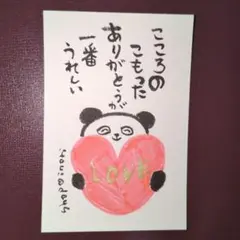 こころの
こもった
ありがとうが
一番
うれしい
Love